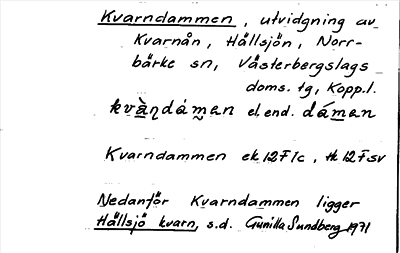 Kvarndammen, utvidgning av
Kvarnån, Hällsjön, Norr-
bärke sn, Västerbergslags
doms. tg, Kopp.l.
el. end.
Kvarndammen ek 12F1c, tk 12Fsv
Nedanför Kvarndammen ligger
Hällsjö kvarn, s.d. Gunilla Sundberg 1971